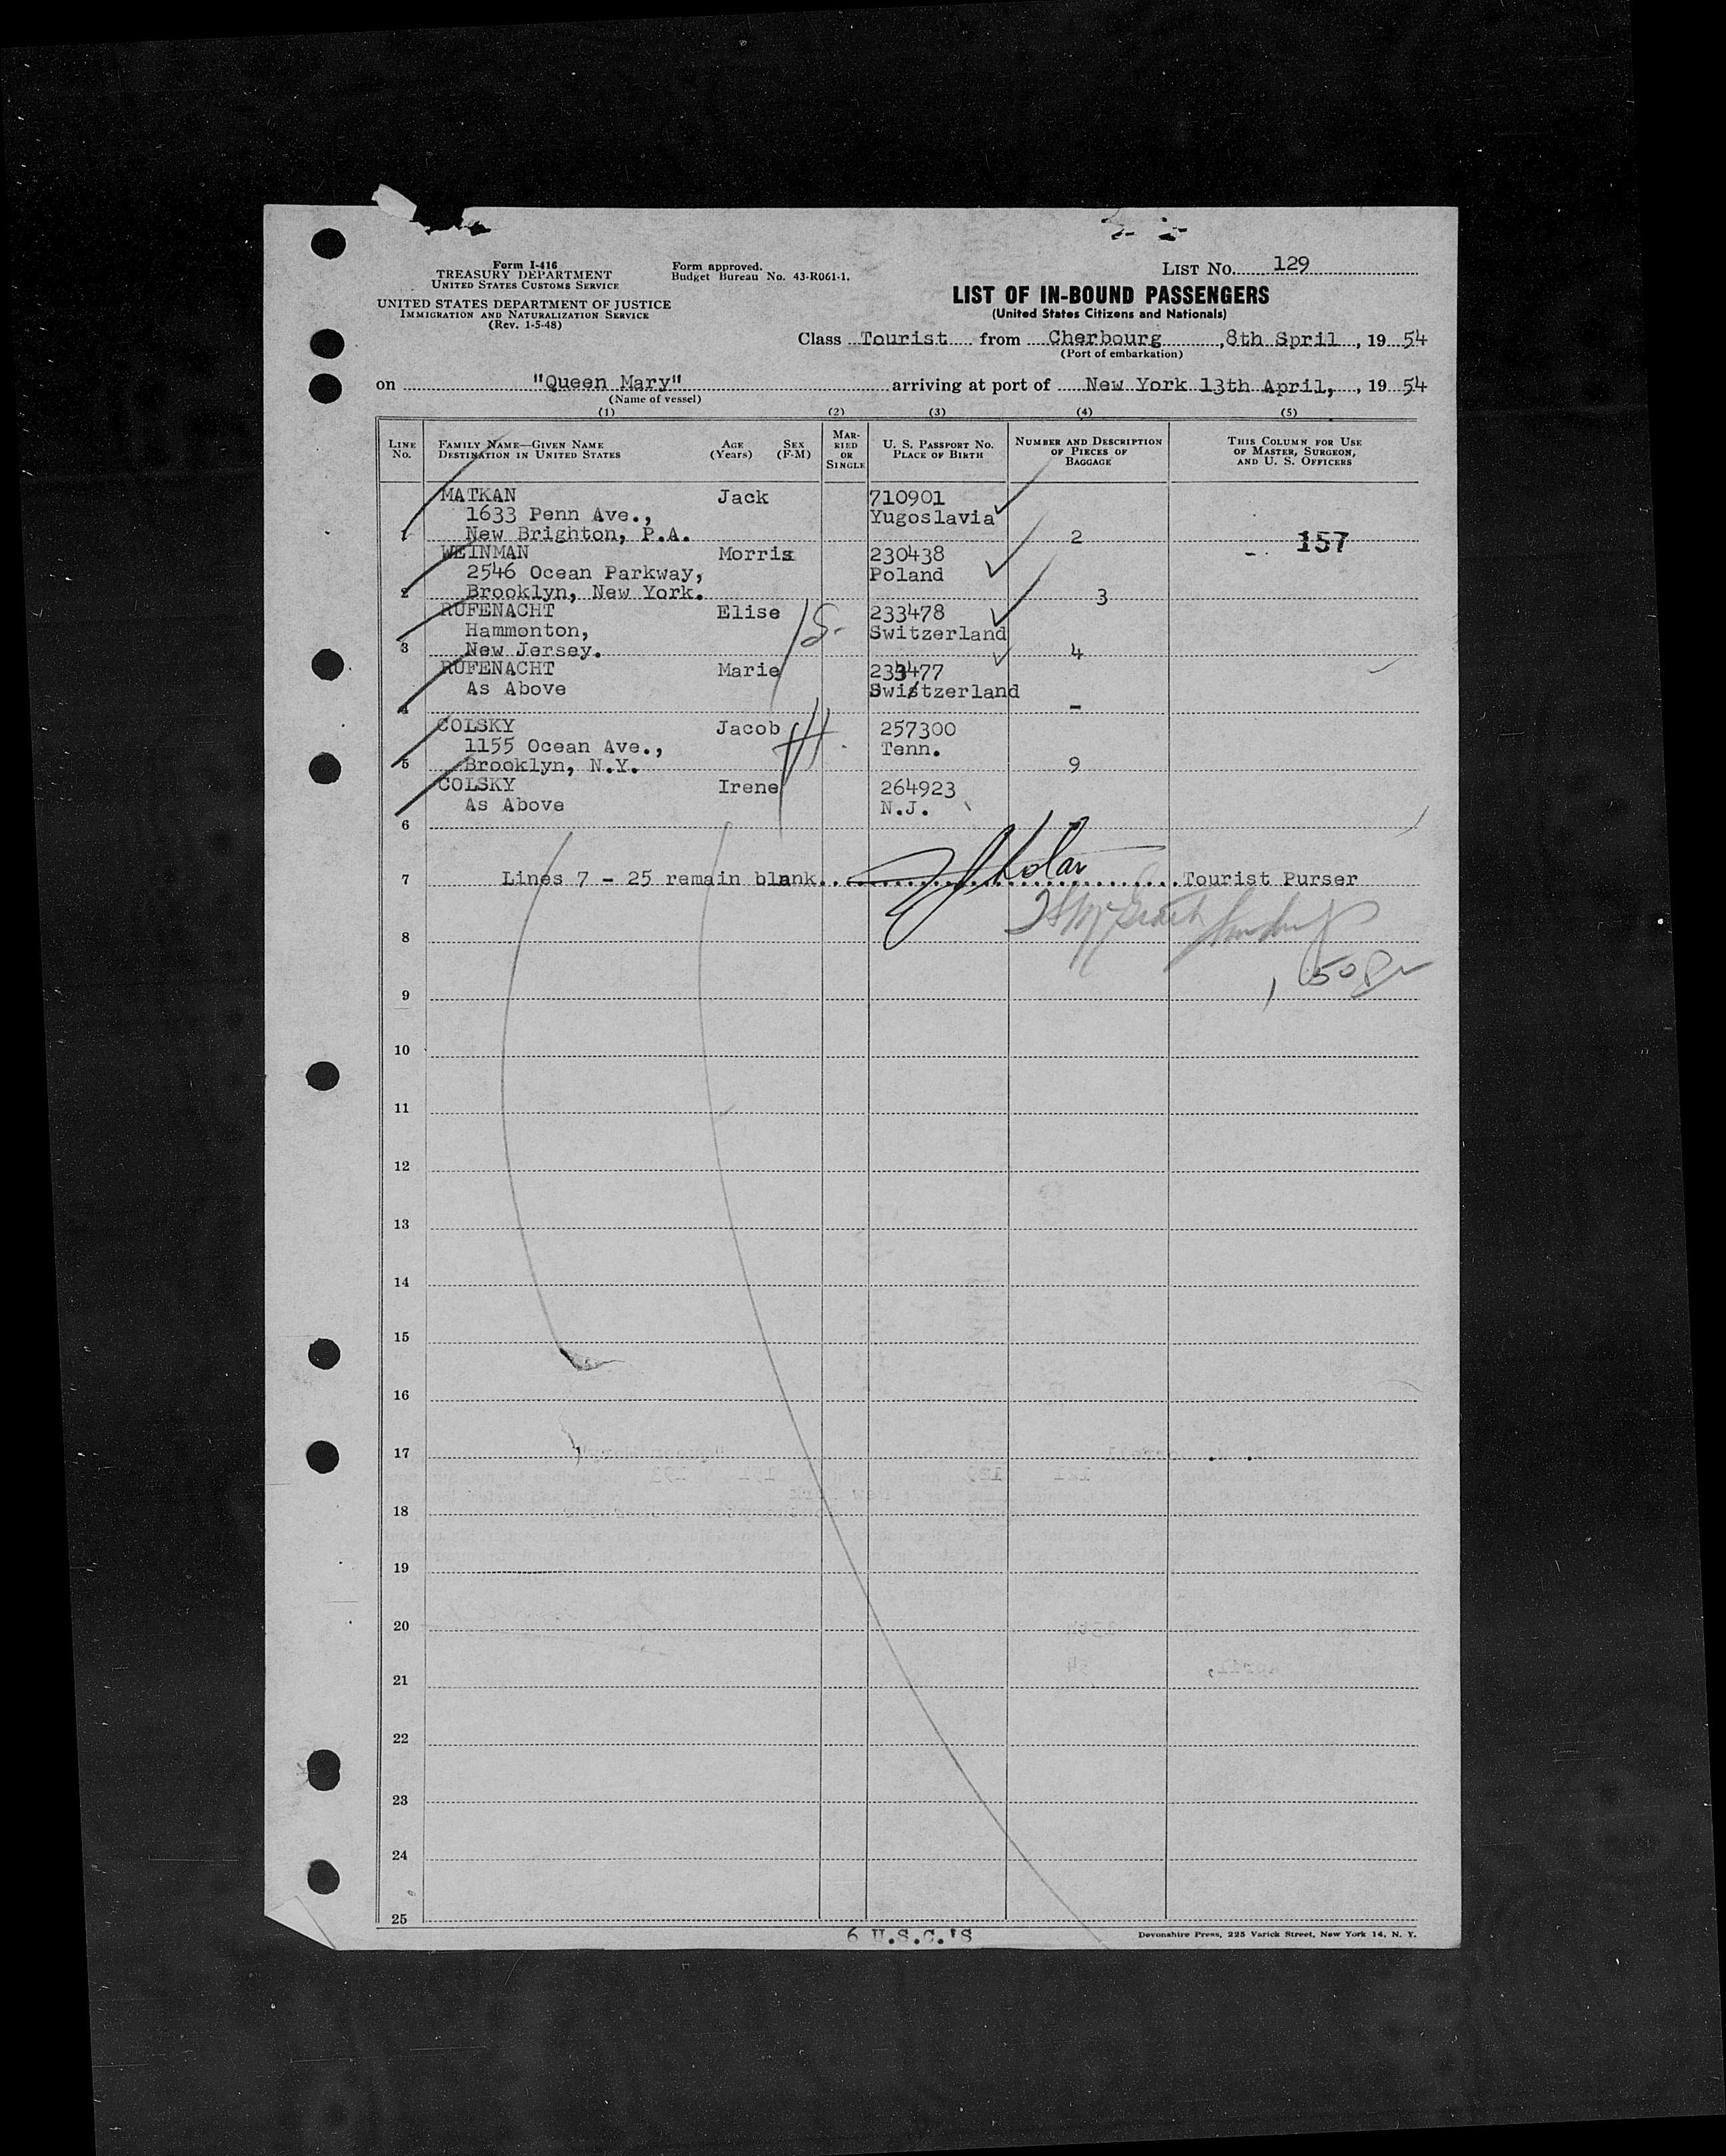 Form I-416
TREASURY DEPARTMENT
UNITED STATES CUSTOMS SERVICE
UNITED STATES DEPARTMENT OF JUSTICE
IMMIGRATION AND NATURALIZATION SERVICE
(Rev. 1-5-48)
Form approved.
Budget Bureau No. 43-R061-1.
LIST No. 129
LIST OF IN-BOUND PASSENGERS
(United States Citizens and Nationals)
Class Tourist from Cherbourg, 8th Spril, 19 54
(Port of embarkation)
on "Queen Mary" arriving at port of New York 13th April, , 19 54
(Name of vessel)
(1) (2) (3) (4) (5)
LINE No. FAMILY NAME—GIVEN NAME DESTINATION IN UNITED STATES AGE (Years) SEX (F-M) MARRIED OR SINGLE U. S. PASSPORT NO. PLACE OF BIRTH NUMBER AND DESCRIPTION OF PIECES OF BAGGAGE THIS COLUMN FOR USE OF MASTER, SURGEON, AND U. S. OFFICERS
MATKAN Jack 710901
1633 Penn Ave., Yugoslavia
1 New Brighton, P.A. 2 157
WEINMAN Morris 230438
2546 Ocean Parkway, Poland
2 Brooklyn, New York. 3
RUFENACHT Elise 233478
Hammonton, Switzerland
3 New Jersey. 4
RUFENACHT Marie 233477
As Above Switzerland
4 -
COLSKY Jacob 257300
1155 Ocean Ave., Tenn.
5 Brooklyn, N.Y. 9
COLSKY Irene 264923
As Above N.J.
6
7 Lines 7 - 25 remain blank. Tourist Purser
8
9
10
11
12
13
14
15
16
17
18
19
20
21
22
23
24
25
6 U.S.C.'S
Devonshire Press, 225 Varick Street, New York 14, N. Y.